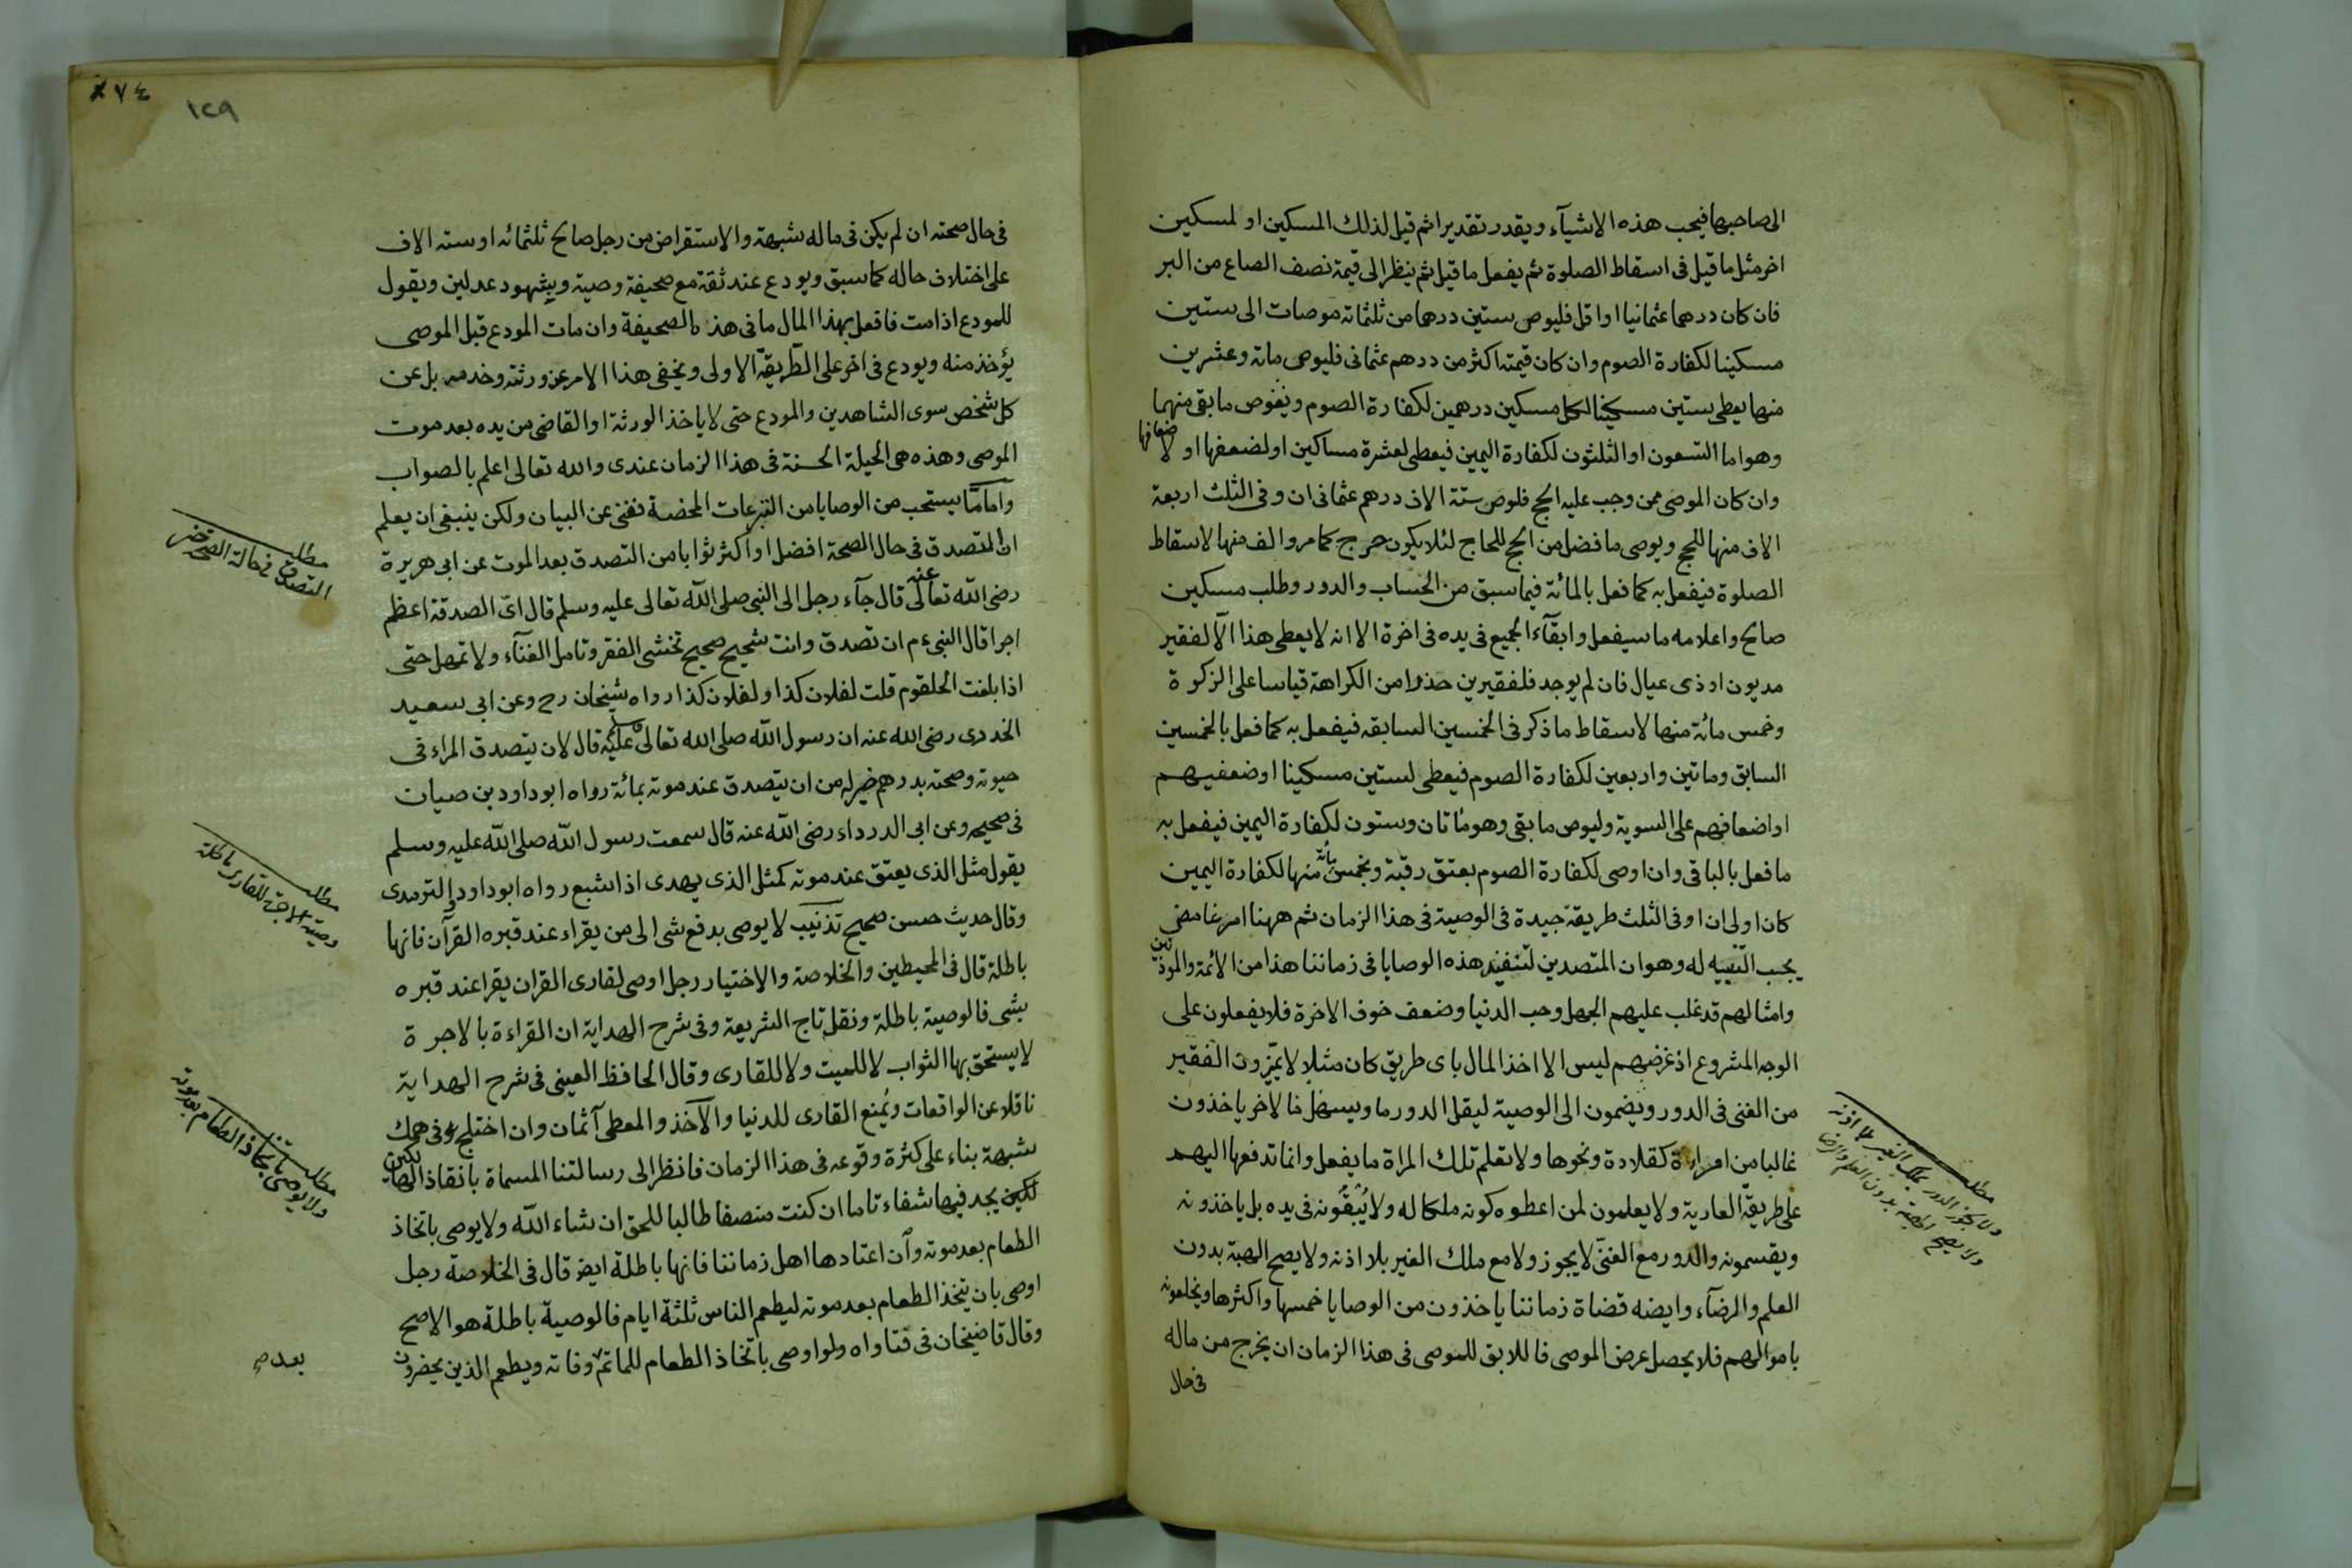 الى صاحبها فيحب هذه الاشيآء ويقدر تقديرا ثم قيل لذلك المسكين او لمسكين
اخر مثل ما قيل فى اسقاط الصلوة ثم يفعل ما قيل ثم ينظر الى قيمة نصف الصاع من البر
فان كان درهما عثمانيا او اقل فليوص ستين درهما من ثلثمائة موصات الى ستين
مسكينا لكفارة الصوم وان كان قيمته اكثر من درهم عثمانى فليوص مائة وعشرين
منها يعطى ستين مسكينا لكل مسكين درهمين لكفارة الصوم ويفوض ما بقى منهما
وهو اما التسعون او الثلثون لكفارة اليمين فيعطى لعشرة مساكين او لضعفها او لاضعافها
وان كان الموصى ممن وجب عليه الحج فلوص ستة الاف درهم عثمانى ان وفى الثلث اربعة
الاف منها للحج ويوصى ما فضل من الحج للحاج لئلا يكون حرج كما مر والف منها لاسقاط
الصلوة فيفعل به كما فعل بالمائة فيما سبق من الحساب والدور وطلب مسكين
صالح واعلامه ما سيفعل وابقآء الجميع فى يده فى اخرة الا انه لا يعطى هذا الا لفقير
مديون او ذى عيال فان لم يوجد فلفقيرين حذرا من الكراهة قياسا على الزكوة
وخمس مائة منها لاسقاط ما ذكر فى الخمسين السابقه فيفعل به كما فعل بالخمسين
السابق ومائتين واربعين لكفارة الصوم فيعطى لستين مسكينا او ضعفيهم
او اضعافهم على السوية وليوص ما بقى وهو مائتان وستون لكفارة اليمين فيفعل به
ما فعل بالباقى وان اوصى لكفارة الصوم بعتق رقبة وبخمس مائة منها لكفارة اليمين
كان اولى ان اوفى الثلث طريقة جيدة فى الوصية فى هذا الزمان ثم ههنا امر غامض
يجب التنبيه له وهو ان المتصدين لتنفيذ هذه الوصايا فى زماننا هذا من الائمة والموذنين
وامثالهم قد غلب عليهم الجهل وحب الدنيا وضعف خوف الاخرة فلا يفعلون على
الوجه المشروع اذ غرضهم ليس الا اخذ المال باى طريق كان مثلا لا يميزون الفقير
من الغنى فى الدور ويضمون الى الوصية ليقل الدور ما ويسهل خا لاخر ياخذون
غالبا من امراءة كقلادة ونحوها ولا تعلم تلك المراة ما يفعل وانما تدفعها اليهم
على طريقة العارية ولا يعلمون لمن اعطوه كونه ملكا له ولا يبقونه فى يده بل ياخذونه
ويقسمونه والدور مع الغنى لا يجوز ولا مع ملك الغير بلا اذنه ولا يصح الهبة بدون
العلم والرضآء وايضه قضاة زماننا ياخذون من الوصايا خمسها واكثرها ويخلعونه
باموالهم فلا يحصل غرض الموصى فاللايق للموصى فى هذا الزمان ان يخرج من ماله
فى حال
مطلب
ولا يجوز الدور بملك الغير بلا اذنه
ولا يصح الهبة بدون العلم والرضا
٧٤
١٢٩
فى حال صحته ان لم يكن فى ماله شبهة والاستقراض من رجل صالح ثلثمائه او سته الاف
على اختلاف حاله كما سبق ويودع عند ثقة مع صحيفة وصية ويشهود عدلين ويقول
للمودع اذا مت فافعل بهذا المال ما فى هذه الصحيفة وان مات المودع قبل الموصى
يؤخذ منه ويودع فى اخر على الطريقة الاولى ويخفى هذا الامر عن ورثته وخدمه بل عن
كل شخص سوى الشاهدين والمودع حتى لا ياخذ الورثة او القاضى من يده بعد موت
الموصى وهذه هى الحيلة الحسنة فى هذا الزمان عندى والله تعالى اعلم بالصواب
واما ما يستحب من الوصايا من التبرعات المحضة فغنى عن البيان ولكن ينبغى ان يعلم
ان التصدق فى حال الصحة افضل او اكثر ثوابا من التصدق بعد الموت عن ابى هريرة
رضى الله تعالى عنه قال جآء رجل الى النبى صلى الله تعالى عليه وسلم قال اى الصدقة اعظم
اجرا قال النبى ءم ان تصدق وانت شحيح صحيح تخشى الفقر وتامل الغنآء ولا تمهل حتى
اذا بلغت الحلقوم قلت لفلان كذا ولفلان كذا رواه شيخان رح وعن ابى سعيد
الخدرى رضى الله عنه ان رسول الله صلى الله تعالى عليه وسلم قال لان يتصدق المراء فى
حيوته وصحته بدرهم خير له من ان يتصدق عند موته بمائة رواه ابو داود بن صيات
فى صحيحه وعن ابى الدرداء رضى الله عنه قال سمعت رسول الله صلى الله عليه وسلم
يقول مثل الذى يعتق عند موته كمثل الذى يهدى اذا شبع رواه ابو داود والترمدى
وقال حديث حسن صحيح تذنيب لا يوصى بدفع شى الى من يقراء عند قبره القرآن فانها
باطلة قال فى المحيطين والخلاصة والاختيار رجل اوصى لقارى القران يقرا عند قبره
بشى فالوصية باطلة ونقل تاج الشريعة وفى شرح الهداية ان القراءة بالاجرة
لا يستحق بها الثواب لا للميت ولا للقارى وقال الحافظ العينى فى شرح الهداية
ناقلا عن الواقعات ويمنع القارى للدنيا والآخذ والمعطى آثمان وان اختلج فى وهمك
شبهة بناء على كثرة وقوعه فى هذا الزمان فانظر الى رسالتنا المسماة بانقاذ الهالكين
لكين يجد فيها شفاء تاما ان كنت منصفا طالبا للحق ان شاء الله ولا يوصى باتخاذ
الطعام بعد موته وان اعتادها اهل زماننا فانها باطلة ايضه قال فى الخلاصة رجل
اوصى بان يتخذ الطعام بعد موته ليطعم الناس ثلثة ايام فالوصية باطلة هو الاصح
وقال قاضيخان فى فتاواه ولو اوصى باتخاذ الطعام للماتم وفاته ويطعم الذين يحضرون
مطلب
التصدق فى حالة الصحة خير
مطلب
وصية الاجرة للقارى باطلة
مطلب
ولا يوصى باتخاذ الطعام بعد موته
بعد